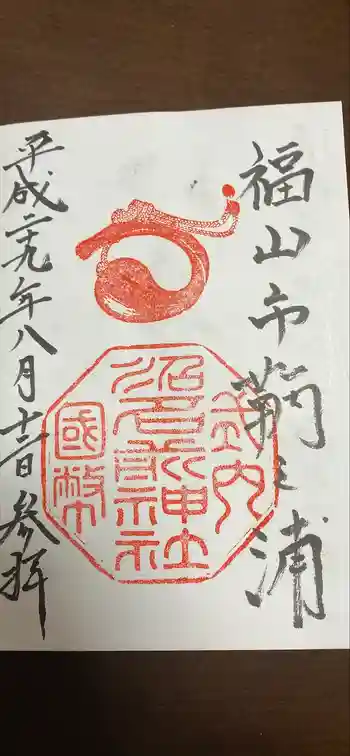 福山市鞆之浦
式内
沼名前神社
國幣
平成二十九年八月十二日参拝